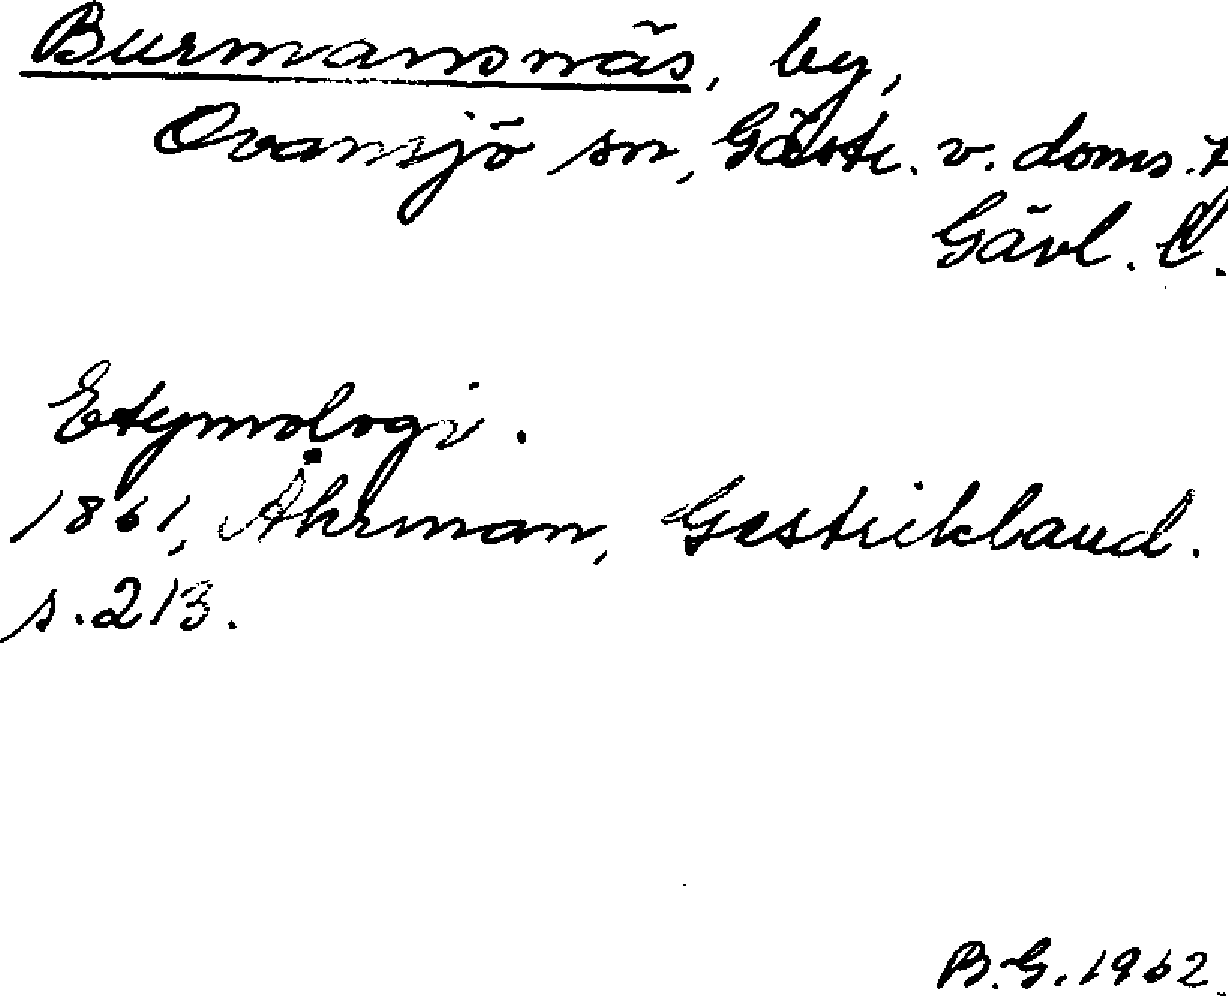 Burmansnäs, by,
Ovansjö sn, Gästr. v. doms.
Gävl. l.
Etymologi.
1861, Åhrman, Gestrikland.
s. 213.
B.G. 1962